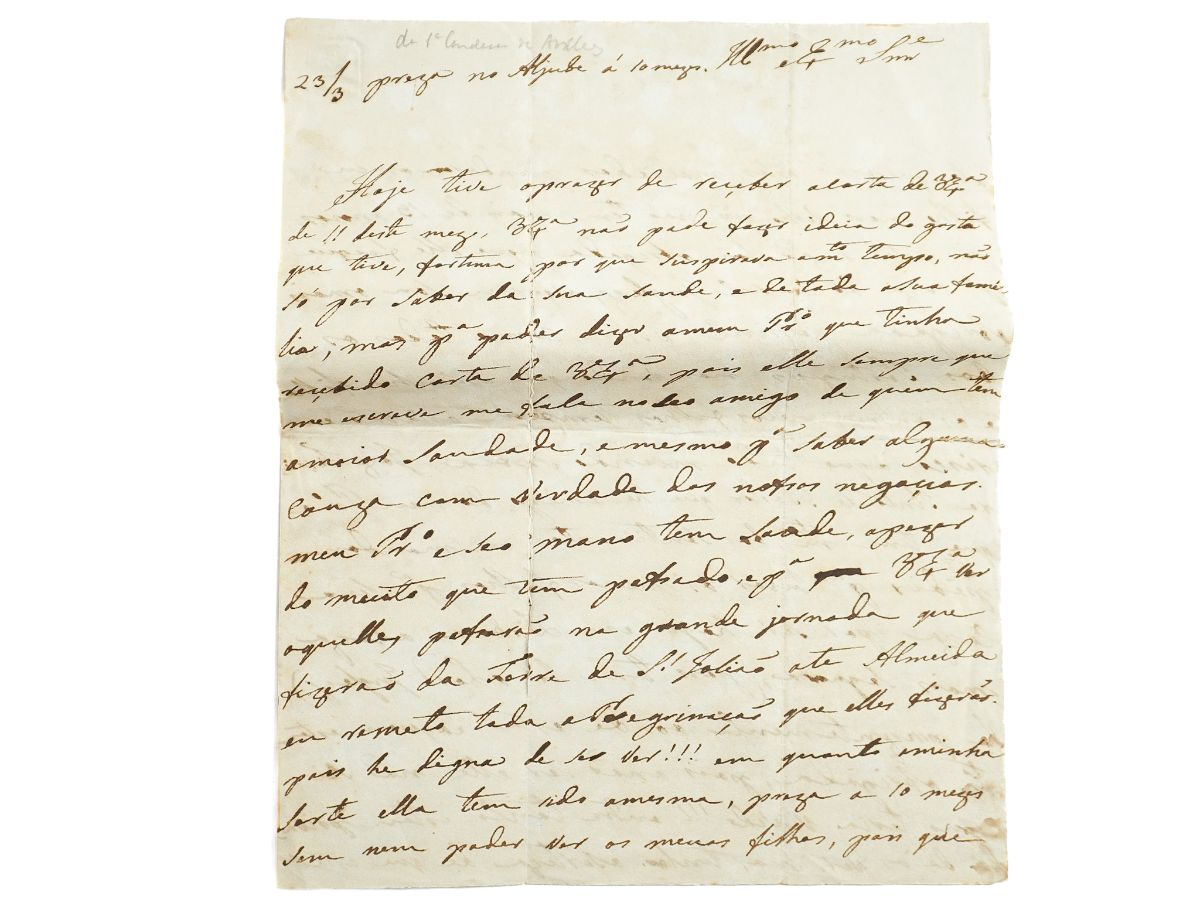 da 1ª Condessa de Avillez
23/3 preza no Aljube á 10 mezes. Illmo e Exmo Snre
Hoje tive oprazer de reçeber acarta de V Exª
de 11 deste meze, V Exª não pode fazer ideia do gosto
que tive, fortuna por que suspirava amto tempo, não
só por saber da sua saude, e de toda asua fami
lia, mas pª poder dizer ameu Pr.o que tinha
reçebido carta de V Exª, pois elle sempre que
me escreve me fala no seo amigo de quem tem
amaior saudade, e mesmo pª saber alguma
couza com verdade dos nossos negoçios.
meu Pr.o e seo mano tem saude, apezar
do muito que tem passado, e pª V Exª ver
oquelles passarão na grande jornada que
fizerão da Torre de S. Julião ate Almeida
eu remeto toda a Peregrinação que elles fizerão.
pois he digna de se ver!!! em quanto aminha
sorte ella tem sido amesma, preza a 10 mezes
sem nem poder ver os meus filhos, pois que